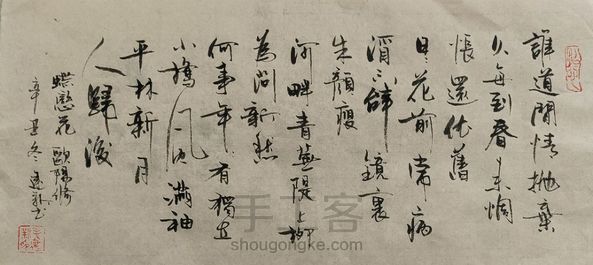 誰道閒情拋棄
久每到春來惆
悵還依舊
日〻花前常病
酒不辭鏡裏
朱顏瘦
河畔青蕪隄上柳
為問新愁
何事年〻有獨立
小橋風滿袖
平林新月
人歸後
蝶戀花 歐陽脩
辛丑冬
手工客
shougongke.com